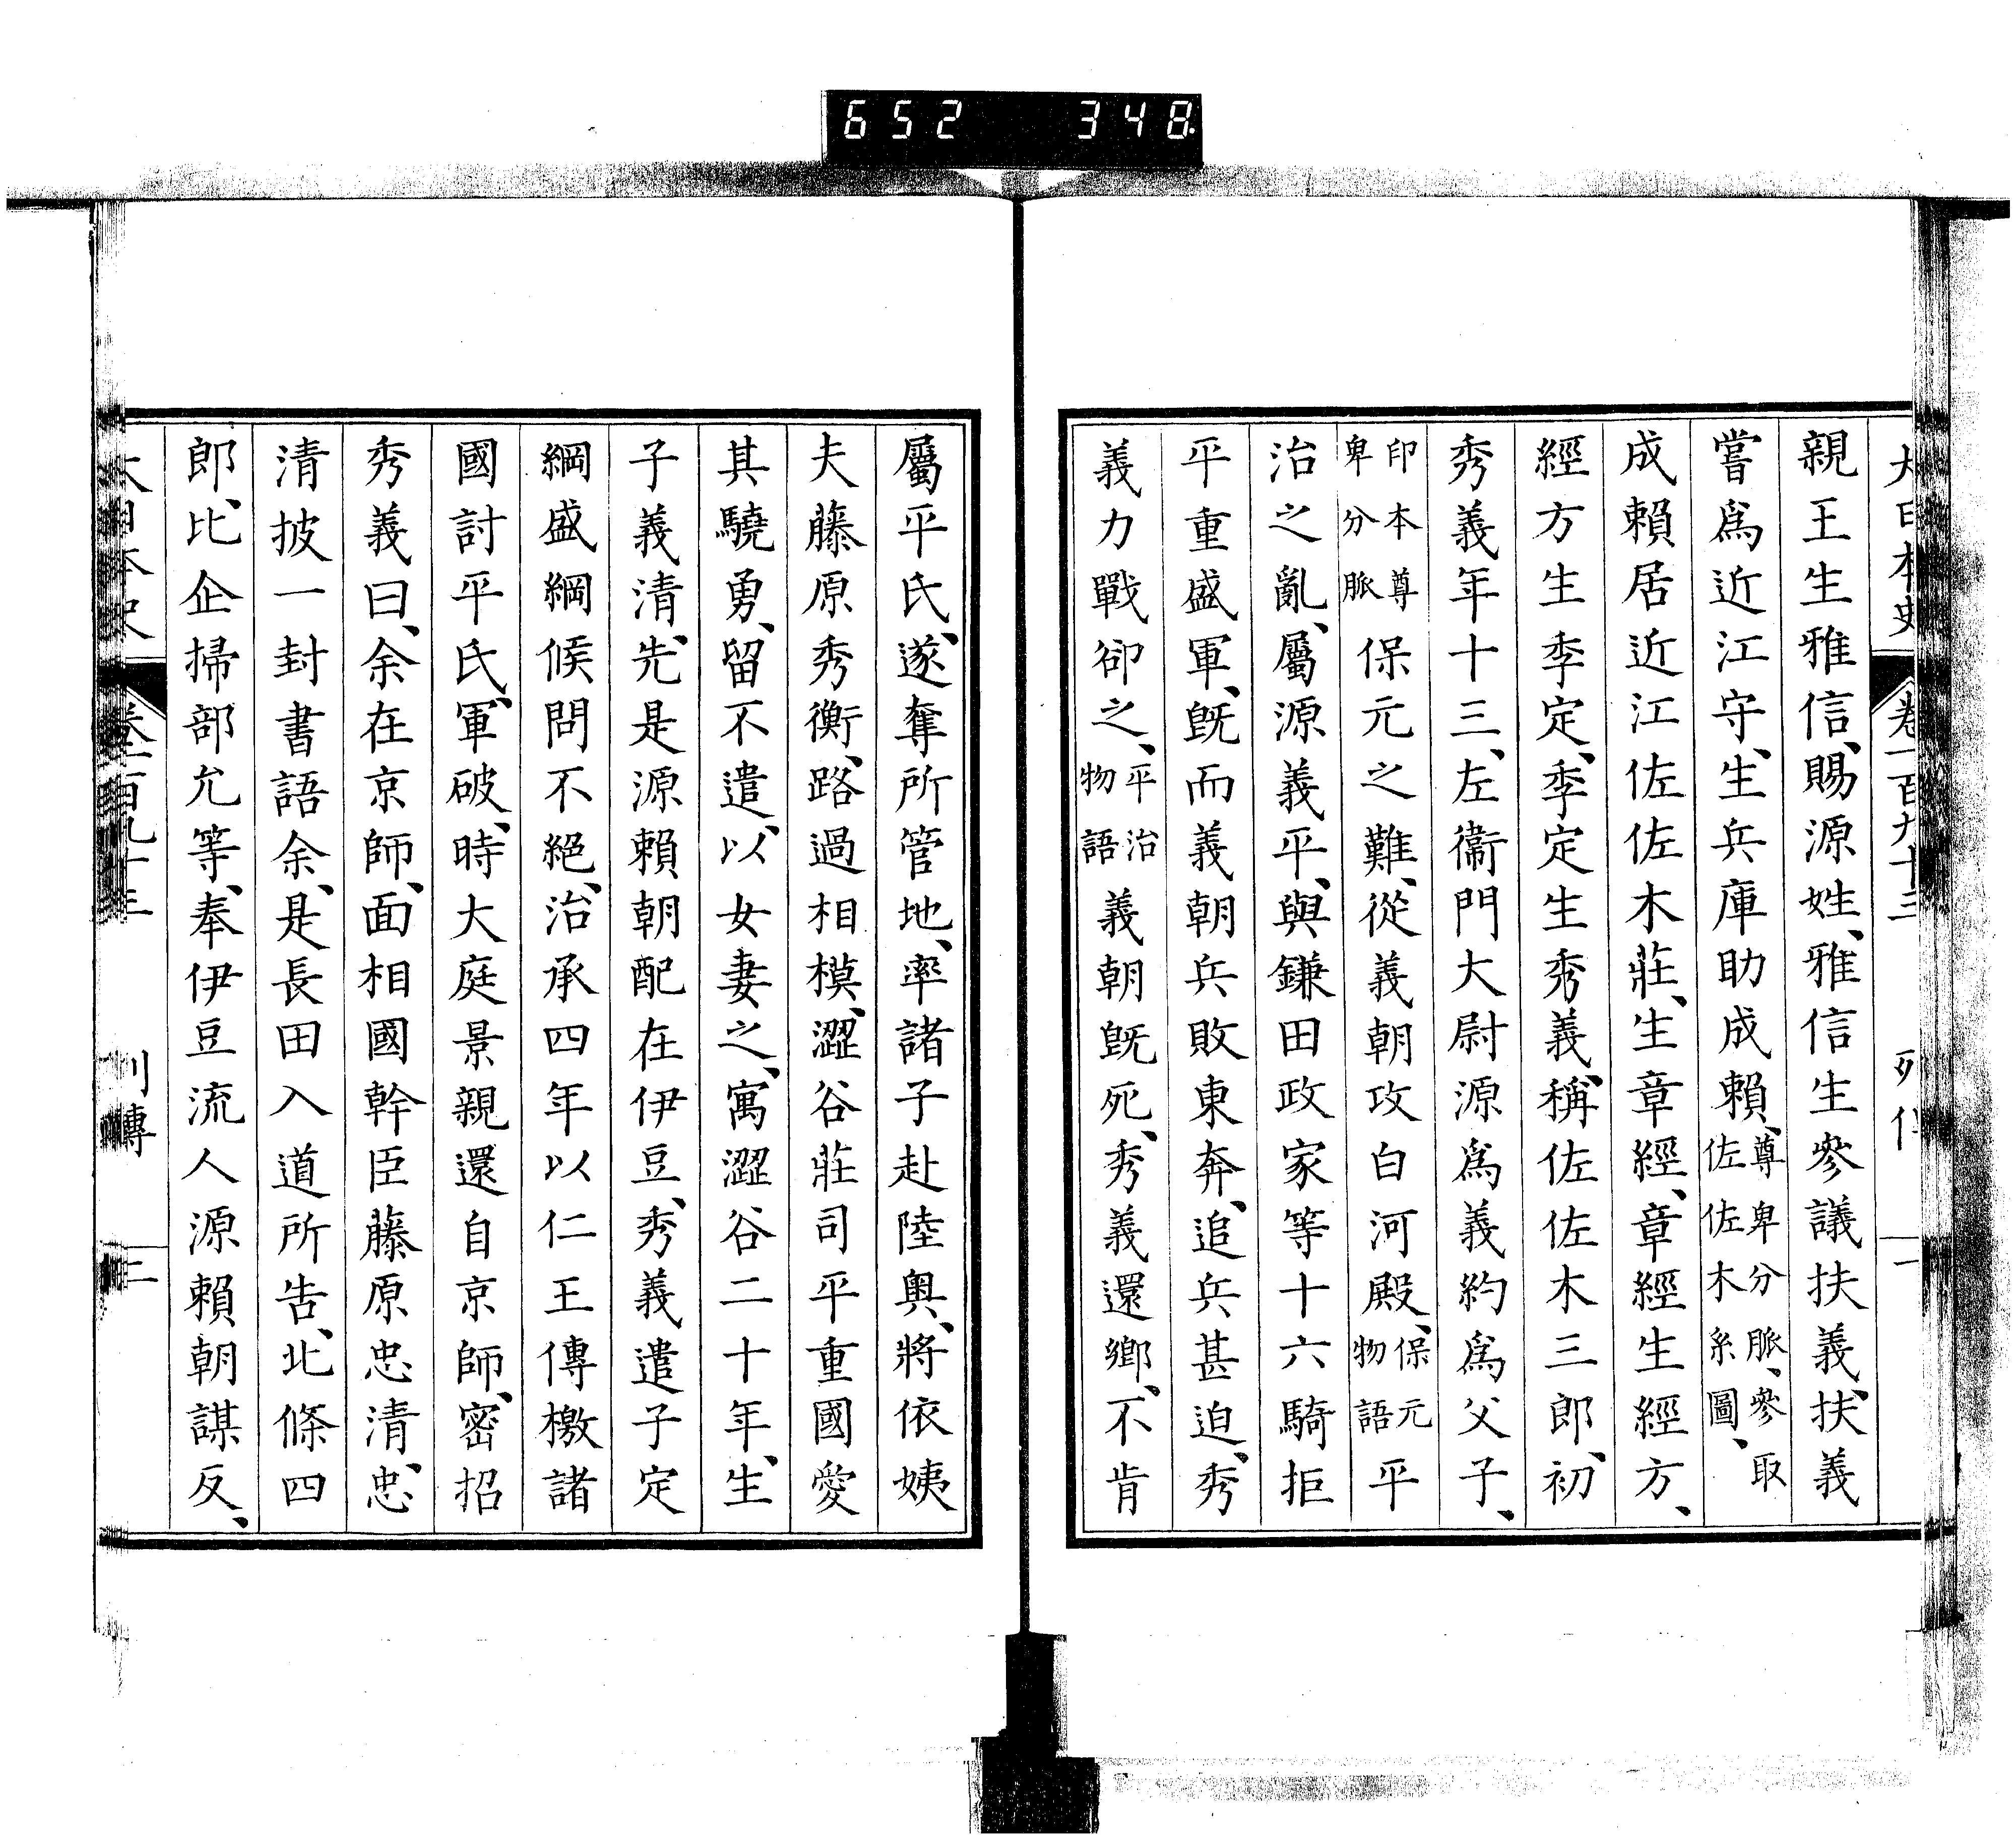 652 348
大日本史 卷一百九十三 列傳 一
親王生雅信、賜源姓、雅信生參議扶義、扶義
嘗爲近江守、生兵庫助成頼、尊卑分脈、參取佐佐木系圖、
成頼居近江佐佐木莊、生章經、章經生經方、
經方生季定、季定生秀義、稱佐佐木三郎、初
秀義年十三、左衞門大尉源爲義約爲父子、
印本尊卑分脈保元之難、從義朝攻白河殿、保元物語平
治之亂、屬源義平、與鎌田政家等十六騎拒
平重盛軍、既而義朝兵敗東奔、追兵甚迫、秀
義力戰卻之、平治物語義朝既死、秀義還鄉、不肯
屬平氏、遂奪所管地、率諸子赴陸奧、將依姨
夫藤原秀衡、路過相模、澀谷莊司平重國愛
其驍勇、留不遣、以女妻之、寓澀谷二十年、生
子義清、先是源頼朝配在伊豆、秀義遣子定
綱盛綱候問不絕、治承四年以仁王傳檄諸
國討平氏、軍破、時大庭景親還自京師、密招
秀義曰、余在京師、面相國幹臣藤原忠清、忠
清披一封書語余、是長田入道所告、北條四
郎、比企掃部允等、奉伊豆流人源頼朝謀反、
大日本史 卷一百九十三 列傳 二